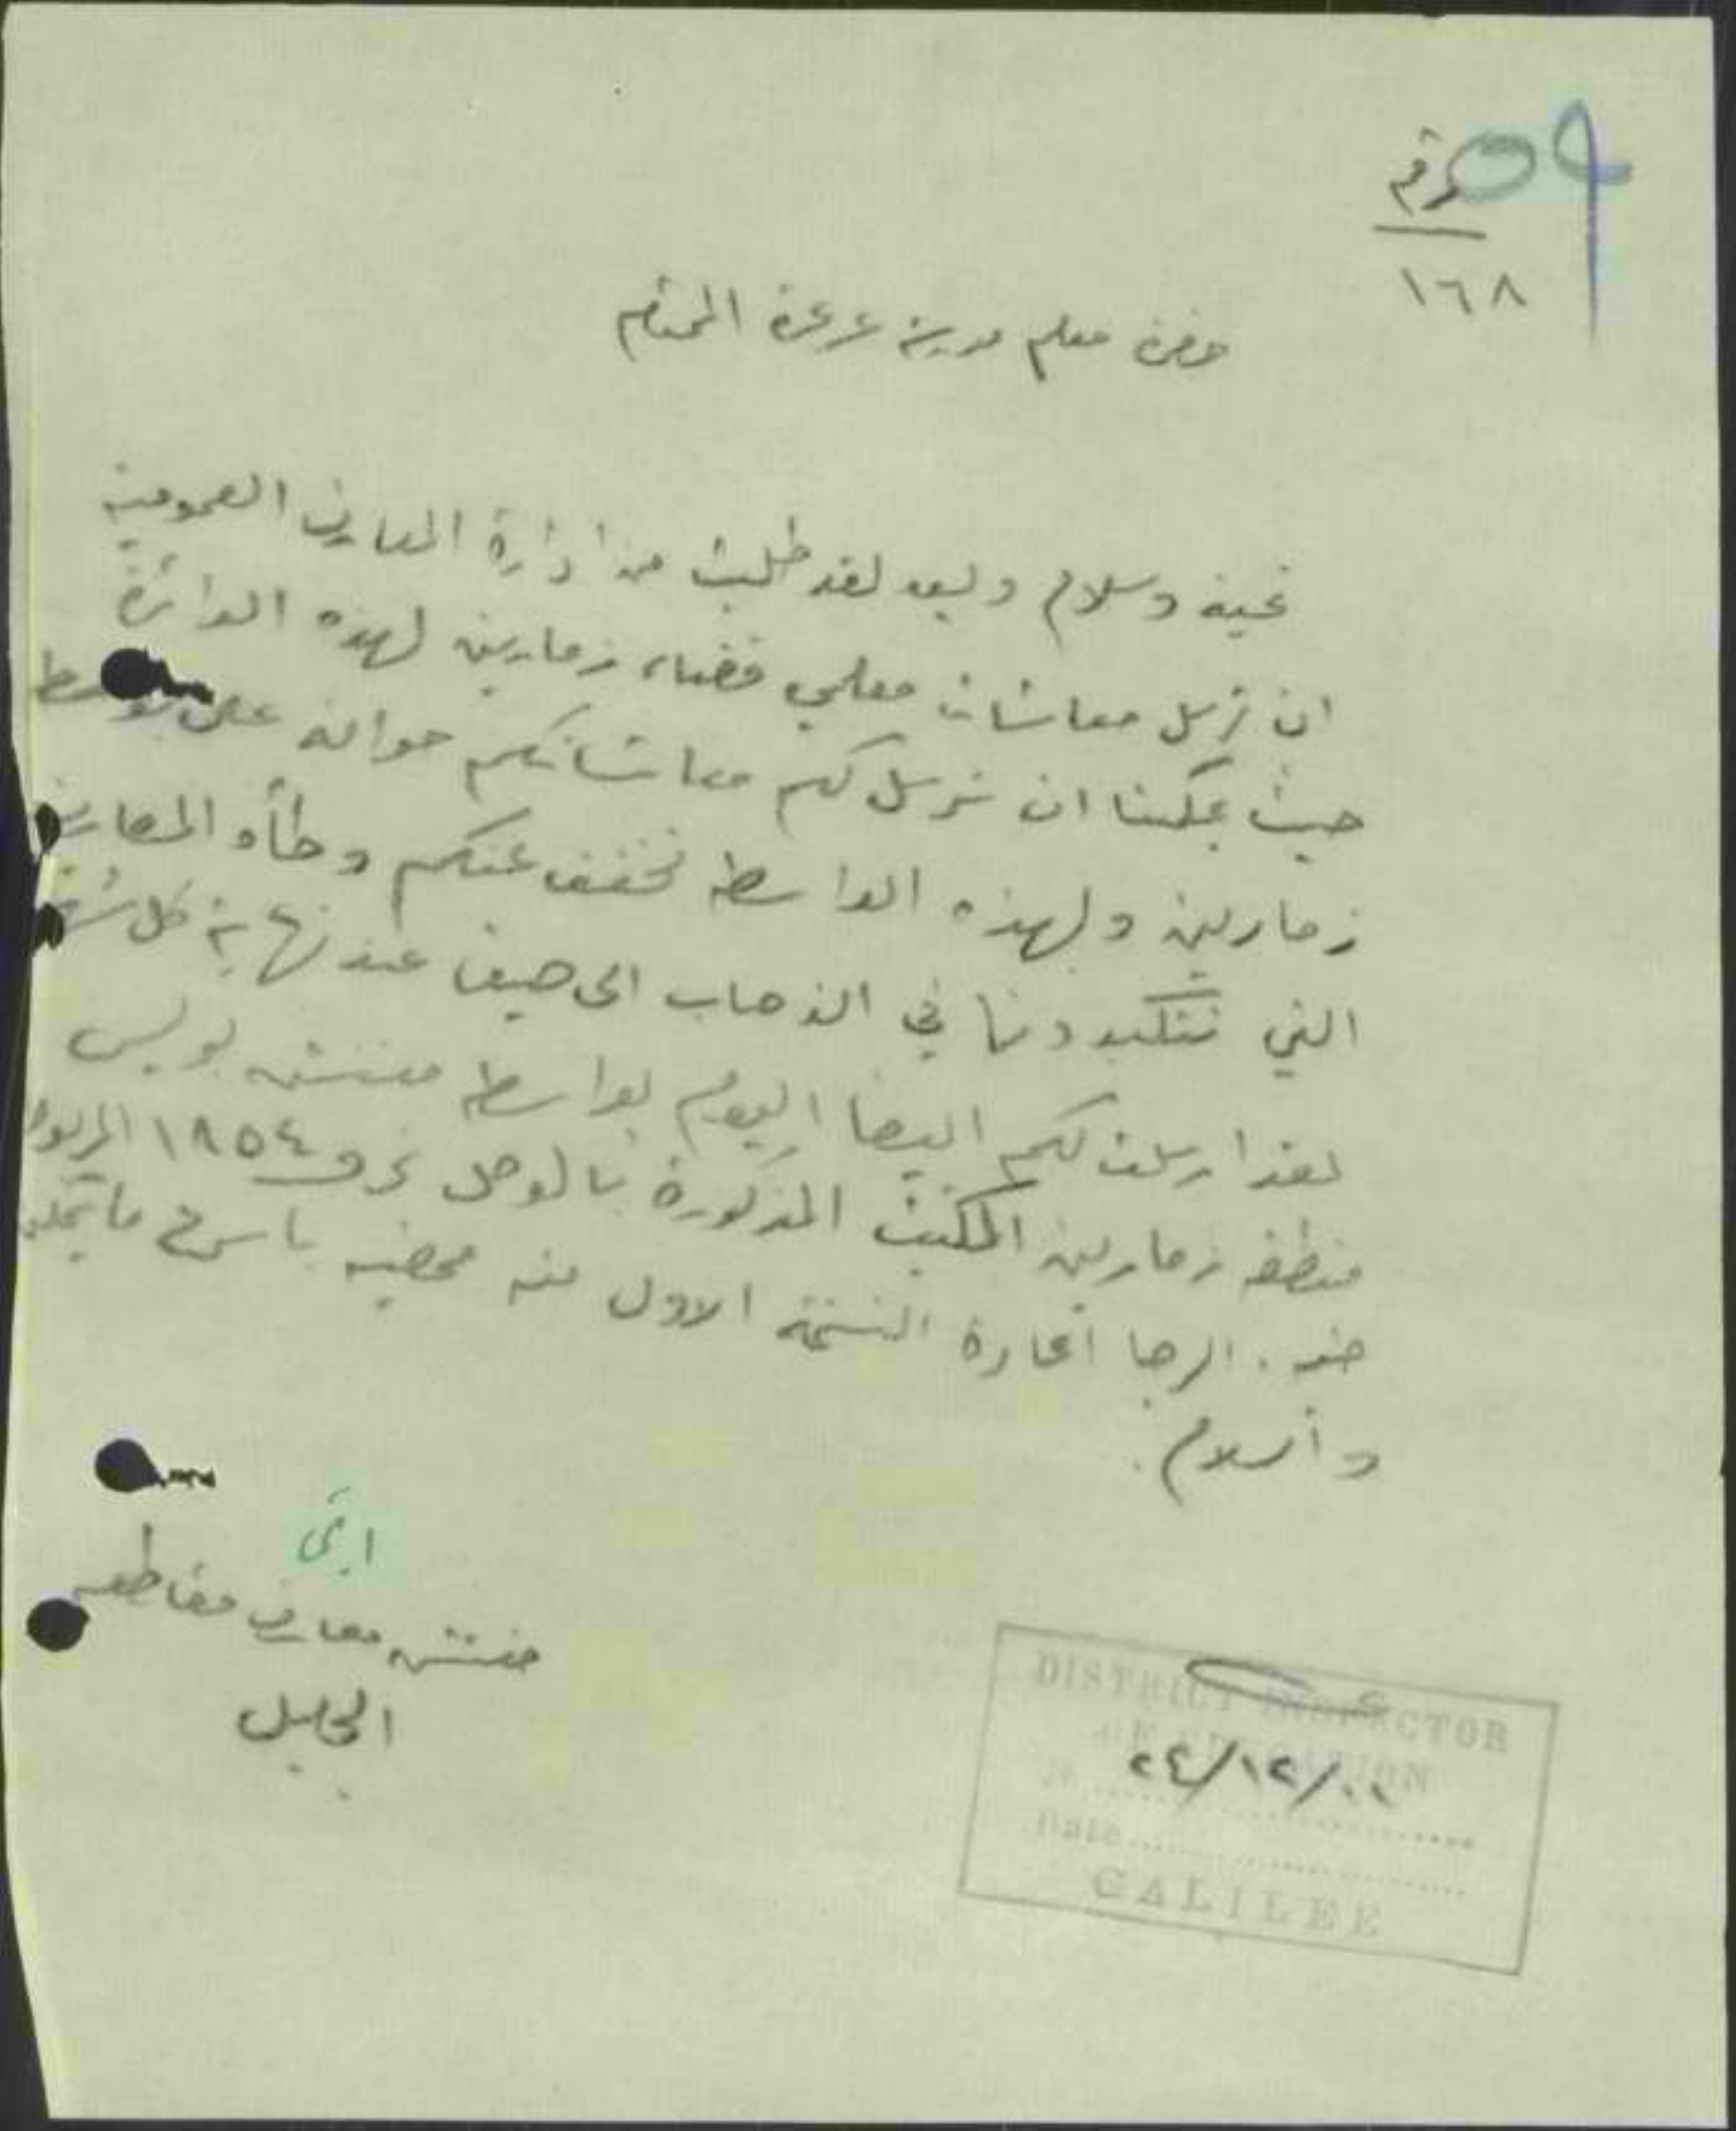 ٥٩
رقم
١٦٨
حضرة معلم مدرسة عرعرة المحترم
تحية وسلام وبعد لقد طلبت من ادارة المعارف العمومية
ان ترسل معاشات معلمي قضاء زمارين لهذه الدائرة
حيث يمكننا ان نرسل لكم معاشاتكم حوالة على
زمارين وبهذه الواسطه نخفف عنكم وطأة المصاريف
التي تتكبدونها في الذهاب الى حيفا عند نهاية كل شهر
لقد ارسلت لكم ايضا اليوم بواسطة مفتش بوليس
منطقة زمارين الكتب المذكورة بالوصل نمرو ١٨٥٤ المربوط
ضمنه . الرجا اعادة النسخة الاولى منه ممضيه باسرع ما يمكن
والسلام .
مفتش معارف مقاطعة
الجليل
DISTRICT INSPECTOR
OF EDUCATION
٢٤/١٢/٢٠
No
Date
GALILEE